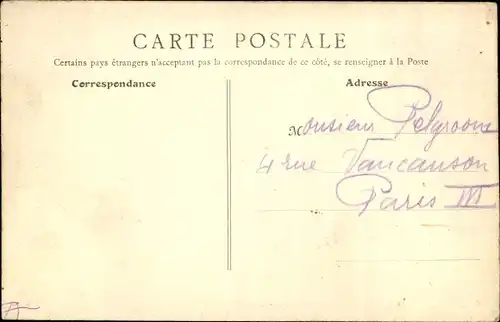 CARTE POSTALE
Certains pays étrangers n'acceptant pas la correspondance de ce côté, se renseigner à la Poste
Correspondance
Adresse
Monsieur
4 rue Vaucanson
Paris III